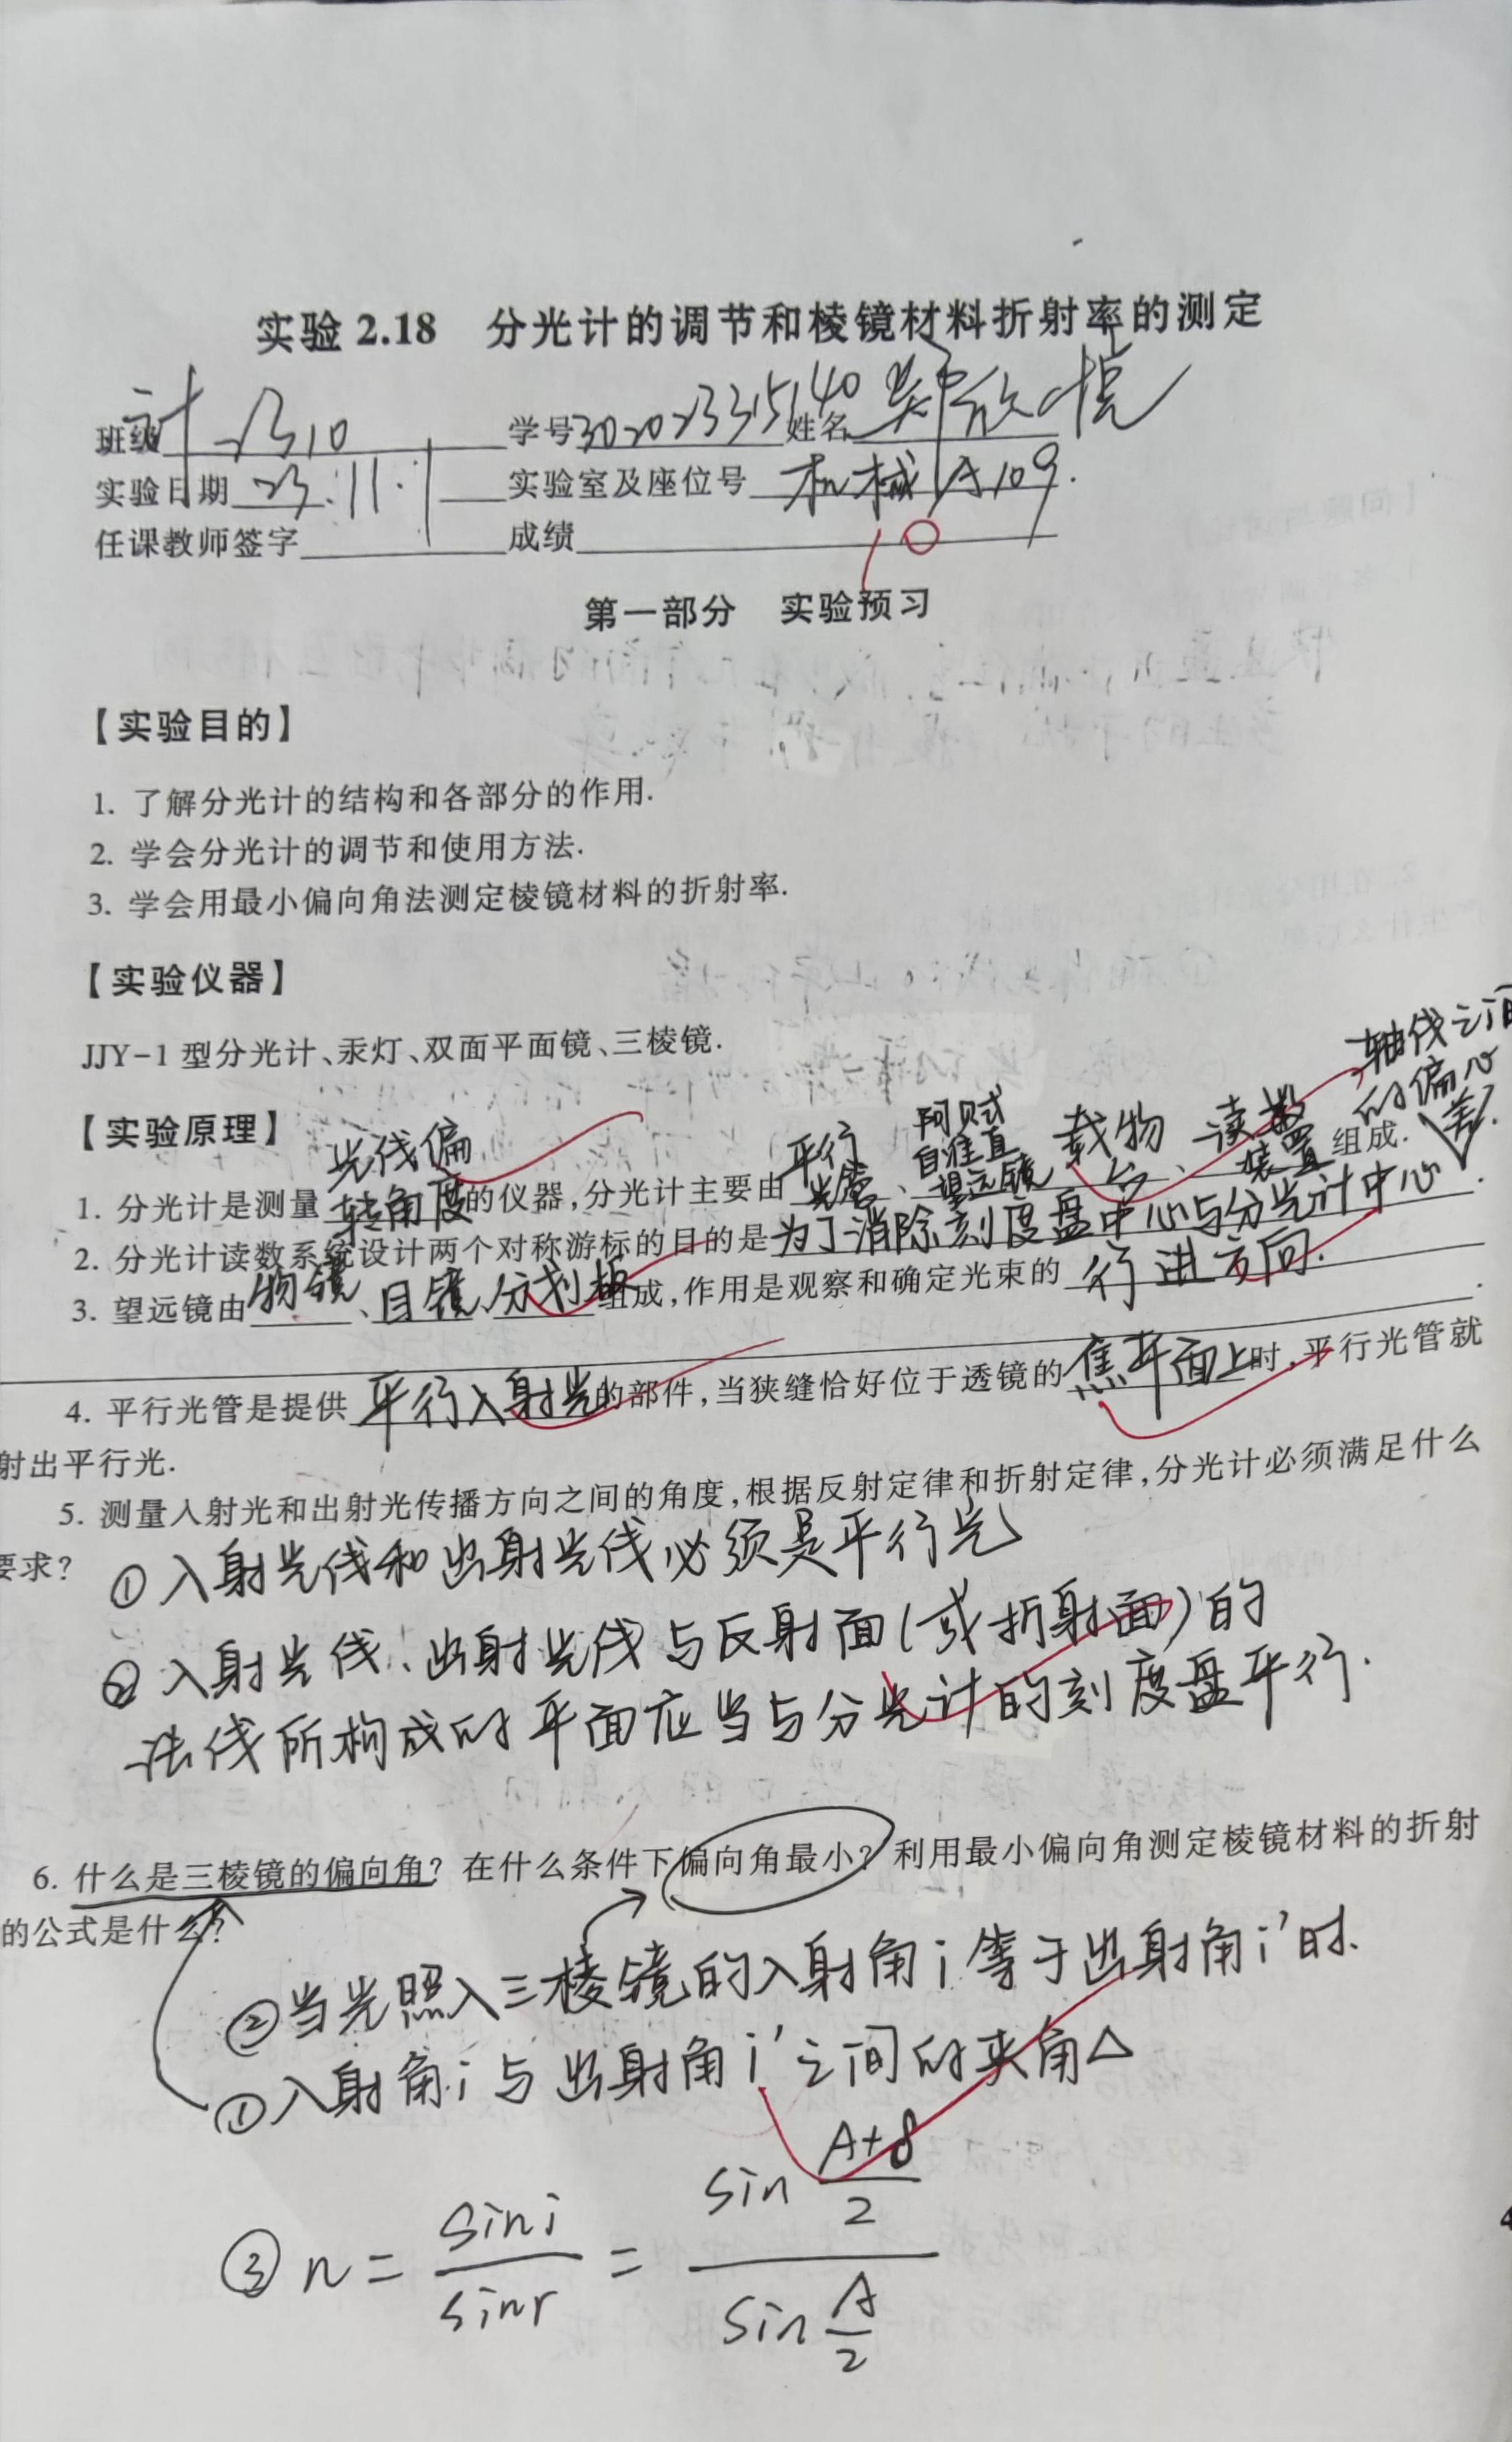 实验 2.18 分光计的调节和棱镜材料折射率的测定
班级 计2310 学号3020233515140 姓名 郑欣悦
实验日期 23.11.1 实验室及座位号 机械A109.
任课教师签字 成绩
10
第一部分 实验预习
【实验目的】
1. 了解分光计的结构和各部分的作用.
2. 学会分光计的调节和使用方法.
3. 学会用最小偏向角法测定棱镜材料的折射率.
【实验仪器】
JJY-1 型分光计、汞灯、双面平面镜、三棱镜.
【实验原理】
1. 分光计是测量光线偏转角度的仪器,分光计主要由平行光管、阿贝式自准直望远镜、载物台、读数装置组成.
2. 分光计读数系统设计两个对称游标的目的是为了消除刻度盘中心与分光计中心轴线之间的偏心差.
3. 望远镜由物镜、目镜、分划板组成,作用是观察和确定光束的行进方向.
4. 平行光管是提供平行入射光的部件,当狭缝恰好位于透镜的焦平面上时,平行光管就
射出平行光.
5. 测量入射光和出射光传播方向之间的角度,根据反射定律和折射定律,分光计必须满足什么
要求?
①入射光线和出射光线必须是平行光
②入射光线、出射光线与反射面(或折射面)的
法线所构成的平面应当与分光计的刻度盘平行.
6. 什么是三棱镜的偏向角? 在什么条件下偏向角最小? 利用最小偏向角测定棱镜材料的折射
的公式是什么?
②当光照入三棱镜的入射角i等于出射角i'时.
①入射角i与出射角i'之间的夹角△
③ n = sin i / sin r = sin (A+δ)/2 / sin A/2
4